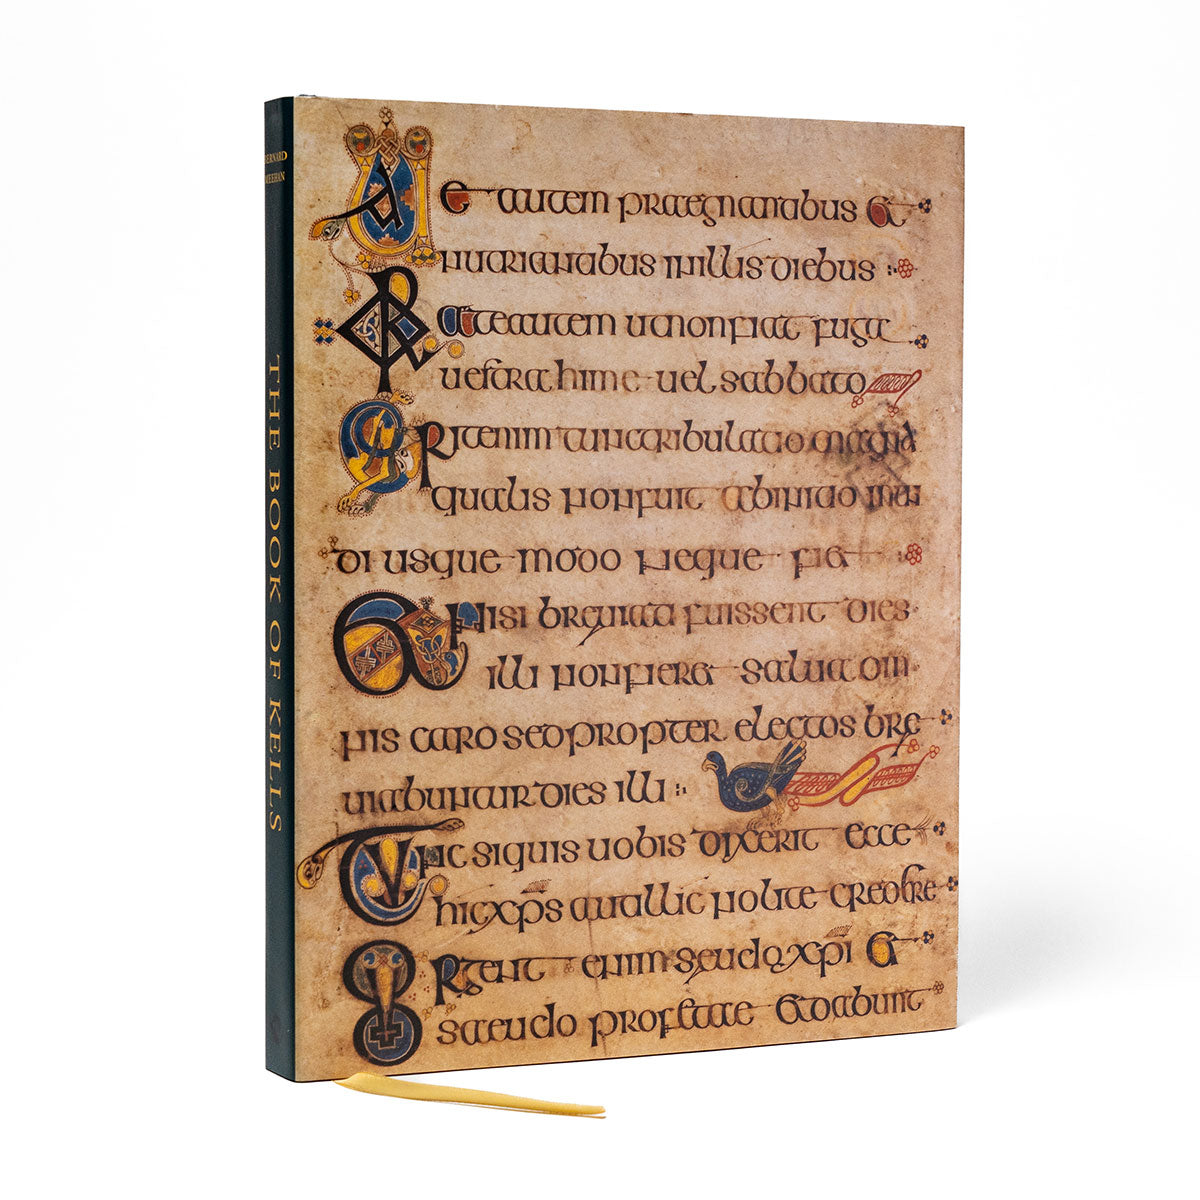 BERNARD
MEEHAN
THE BOOK OF KELLS
Uae autem praegnantibus et
nutrientibus in illis diebus
Orate autem ut non fiat fuga
uestra hime uel sabbato
Erit enim tunc tribulatio magna
qualis non fuit ab initio mun
di usque modo neque fiet
Et nisi breuiata fuissent dies
illi non fieret salua om
nis caro sed propter electos bre
uiabuntur dies illi
Tunc siquis uobis dixerit ecce
hic xps aut illic nolite credere
Surgent enim seudo xpi et
seudo profetae et dabunt